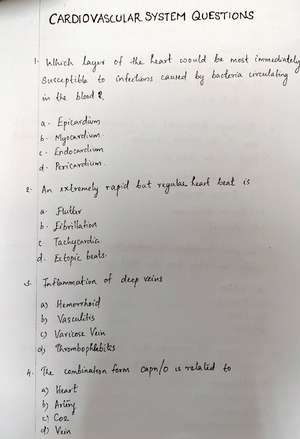 CARDIOVASCULAR SYSTEM QUESTIONS
1. Which layer of the heart would be most immediately
susceptible to infections caused by bacteria circulating
in the blood?
a. Epicardium
b. Myocardium.
c. Endocardium
d. Pericardium.
2. An extremely rapid but regular heart beat is
a. Flutter
b. Fibrillation
c. Tachycardia
d. Ectopic beats.
3. Inflammation of deep veins
a) Hemorrhoid
b) Vasculitis
c) Varicose Vein
d) Thrombophlebites
4. The combination form capn/o is related to
a) Heart
b) Artery
c) CO2
d) Vein